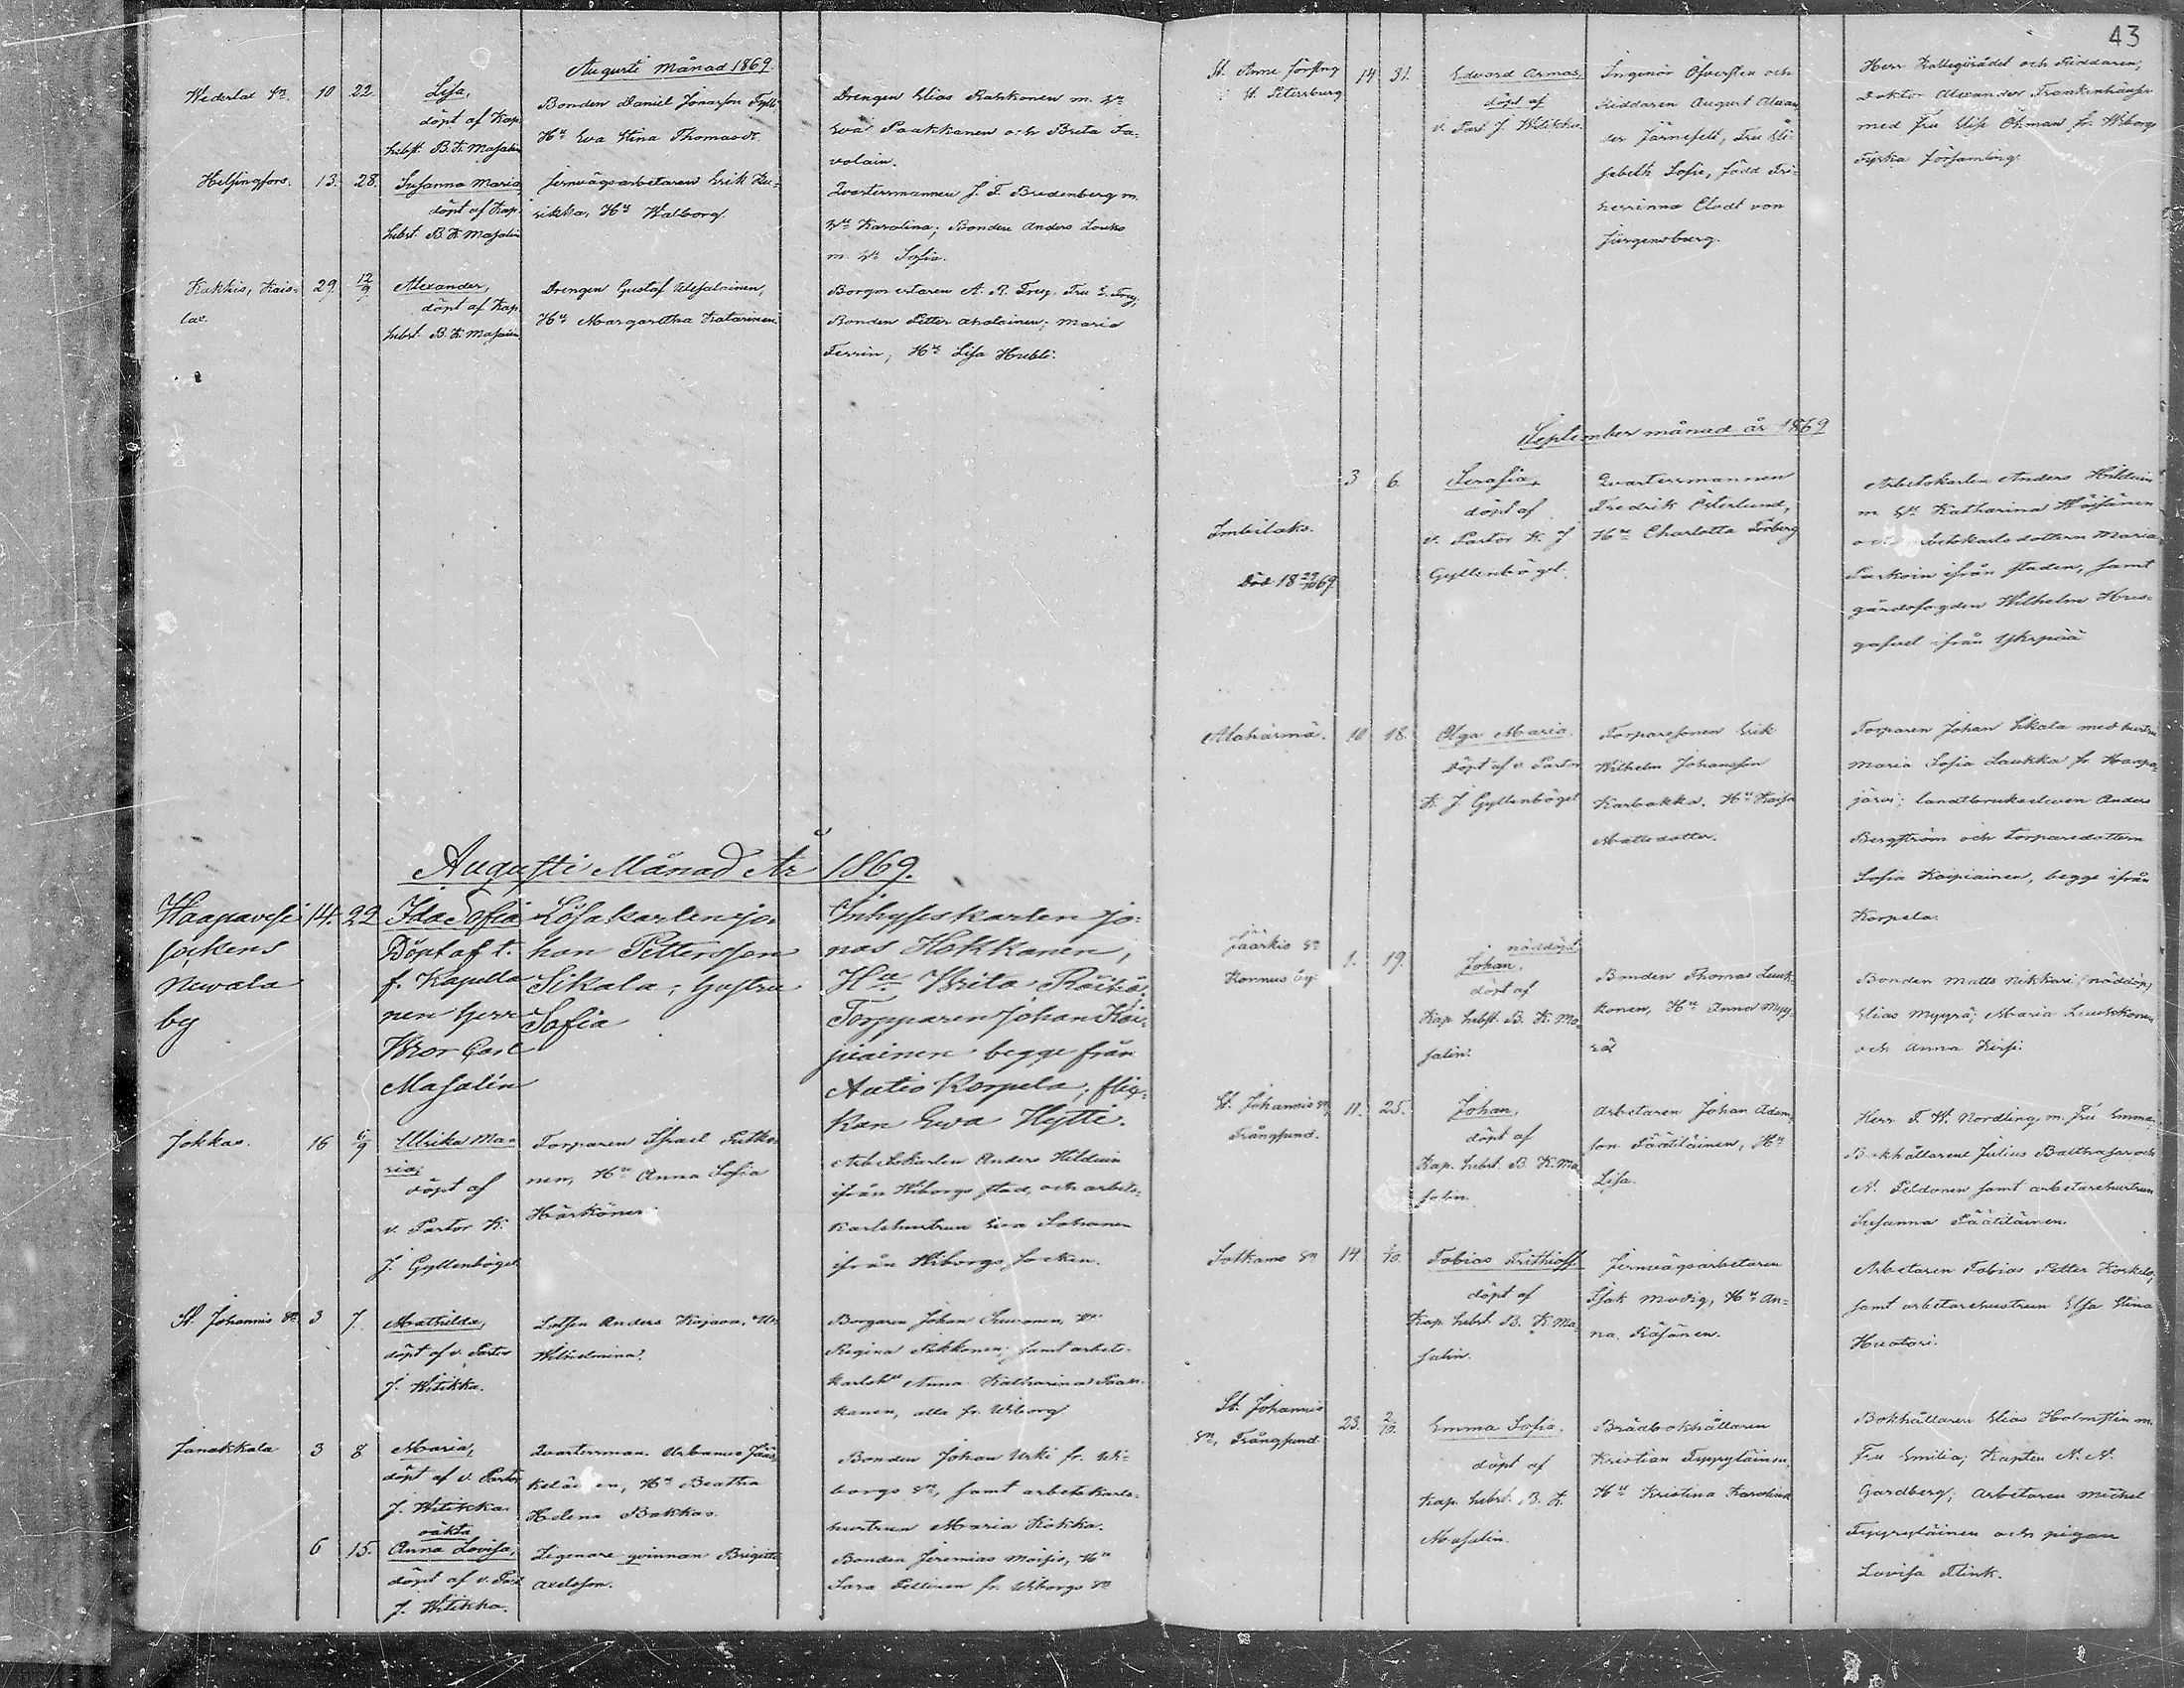 Augusti månad 1869.
Wederlax Sn. 10 22. Lisa,
döpt af Kap.
hibst. B. K. Masalin
Bonden Daniel Jonasson
Hu Eva Stina Thomasdr.
Drengen Elias Rahkonen m. Hu
Eva Paakkanen och Breta Sa-
volain.
Helsingfors. 13. 28. Susanna Maria
döpt af Kap.
hibst. B. K. Masalin
Jernvägsarbetaren Erik Ku-
rikka, Hu Walborg.
Qvartersmannen J. F. Bredenberg m.
Hu Karolina; Bonden Anders Louko
m. Hu Sofia.
Kakkis, Kais-
lax. 29. 12/9. Alexander,
döpt af Kap.
hibst. B. K. Masalin
Drengen Gustaf
Hu Margaretha Katarinen.
Borgmestaren A. R. Frey, Fru E. Frey,
Bonden Petter Aholainen; Maria
Terrin, Hu Lisa
Augusti Månad År 1869.
Haapavesi
sockens
Newala
by
14. 22 Ida Sofia
Döpt af t.
f. Kapella
nen herr
Bror Carl
Masalin
Lösakarlen Jo-
han Pettersson
Sikala, hustru
Sofia
Inhyseskarlen Jo-
nas Hokkanen,
Hu Brita Räihä,
Torpparen Johan Koi-
piainen begge från
Autio Korpela; flig-
kan Ewa Hytti.
Jokkas. 16 6/9 Ulrika Ma-
ria,
döpt af
v. Pastor K.
J. Gyllenbögel
Torparen Israel Putko-
nen, Hu Anna Sofia
Härkönen.
Arbetskarlen Anders Hilduin
ifrån Wiborgs stad, och arbets-
karlshustrun Eva Sohanen
ifrån Wiborgs socken.
St. Johannis Sn. 3 7. Mathilda,
döpt af v. Pastor
J. Witikka.
Lotsen Anders Kirjava, Hu
Wilhelmina.
Borgaren Johan Suuronen, Hu
Regina Pukkonen; samt arbets-
karlshu Anna Katharina Paak-
kanen, alla fr. Wiborg
Janakkala 3 8 Maria,
döpt af v. Pastor
J. Witikka.
Qvartersman. Urbanus Jääs-
keläinen, Hu Beatha
Helena Bakkas.
Bonden Johan Urki fr. Wi-
borgs Sn, samt arbetskarls-
hustrun Maria Kokka.
6 15. oäkta
Anna Lovisa,
döpt af v. Past.
J. Witikka.
Zigenare qvinnan Brigitta
Axelsson.
Bonden Jeremias Moisio, Hu
Sara Pellinen fr. Wiborgs Sn
43
St. Anne förslng
St. Petersburg
14 31. Edvard Armas,
döpt af
v. Past J. Witikka.
Ingeniör Öfversten och
Riddaren August Alexan
der Järnefelt, Fru Eli-
sabeth Sofie, född Fri-
herrinna Clodt von
Jürgensburg.
Herr Kollegirådet och Riddaren,
Doktor Alexander Frankenhäuser
med Fru Elise Öhman fr. Wiborgs
Tyska församling.
September månad år 1869
Imbilaks.
Död 18 29/10 69.
3 6. Serafia,
döpt af
v. Pastor K. J
Gyllenbögel.
Qvartersmannen
Fredrik Österlund,
Hu Charlotta Torberg
Arbetskarlen Anders Hilduin
m Hu Katharina Häsänen
och arbetskarls dottern Maria
Parkoin ifrån staden, samt
gårdsfogden Wilhelm Hus-
gafvel ifrån Ykspää
Alahärmä. 10 18. Olga Maria.
Döpt af v. Pastor
K. J. Gyllenbögel
Torparesonen Erik
Wilhelm Johansson
Karbakka. Hu Kaisa
Mattsdotter.
Torparen Johan Sikala med hustru
Maria Sofia Laukka fr. Haapa-
järvi; landtbrukseleven Anders
Bergström och torparedottern
Sofia Koipiainen, begge ifrån
Korpela.
Jääskis Sn
Konnus by. 1. 19. nöddöpt
Johan,
döpt af
Kap. hibst. B. K. Ma-
salin.
Bonden Thomas Luuk-
konen, Hu Anna Myy-
rä
Bonden Matts Nikkari (nöddöp)
Elias Myyrä; Maria Luukkonen
och Anna Kirsi.
St. Johannis Sn
Trångsund. 11. 25. Johan,
döpt af
Kap. hibst. B. K. Ma
salin.
Arbetaren Johan Adam-
son Päätiläinen, Hu
Lisa.
Herr F. W. Nordling m. Fru Emma,
Bokhållarene Julius Balthasar och
N. Peldonen samt arbetarehustrun
Susanna Päätiläinen.
Sotkamo Sn 14 Tobias Frithioff.
döpt af
Kap. hibst. B. K. Ma
salin.
Jernvägsarbetaren
Isak Modig, Hu An-
na Räsänen.
Arbetaren Tobias Petter Korkela,
samt arbetarehustrun Elsa Stina
Huotari.
St. Johannis
Sn, Trångsund. 23. 2/10. Emma Sofia,
döpt af
Kap. hibst. B. K.
Masalin.
Brädbokhållaren
Kristian Typpyläinen,
Hu Kristina Karolina
Bokhållaren Elias Holmstén m.
Fru Emilia; Kapten N. N.
Gardberg; Arbetaren Michel
Typpyläinen och pigan
Lovisa Flink.